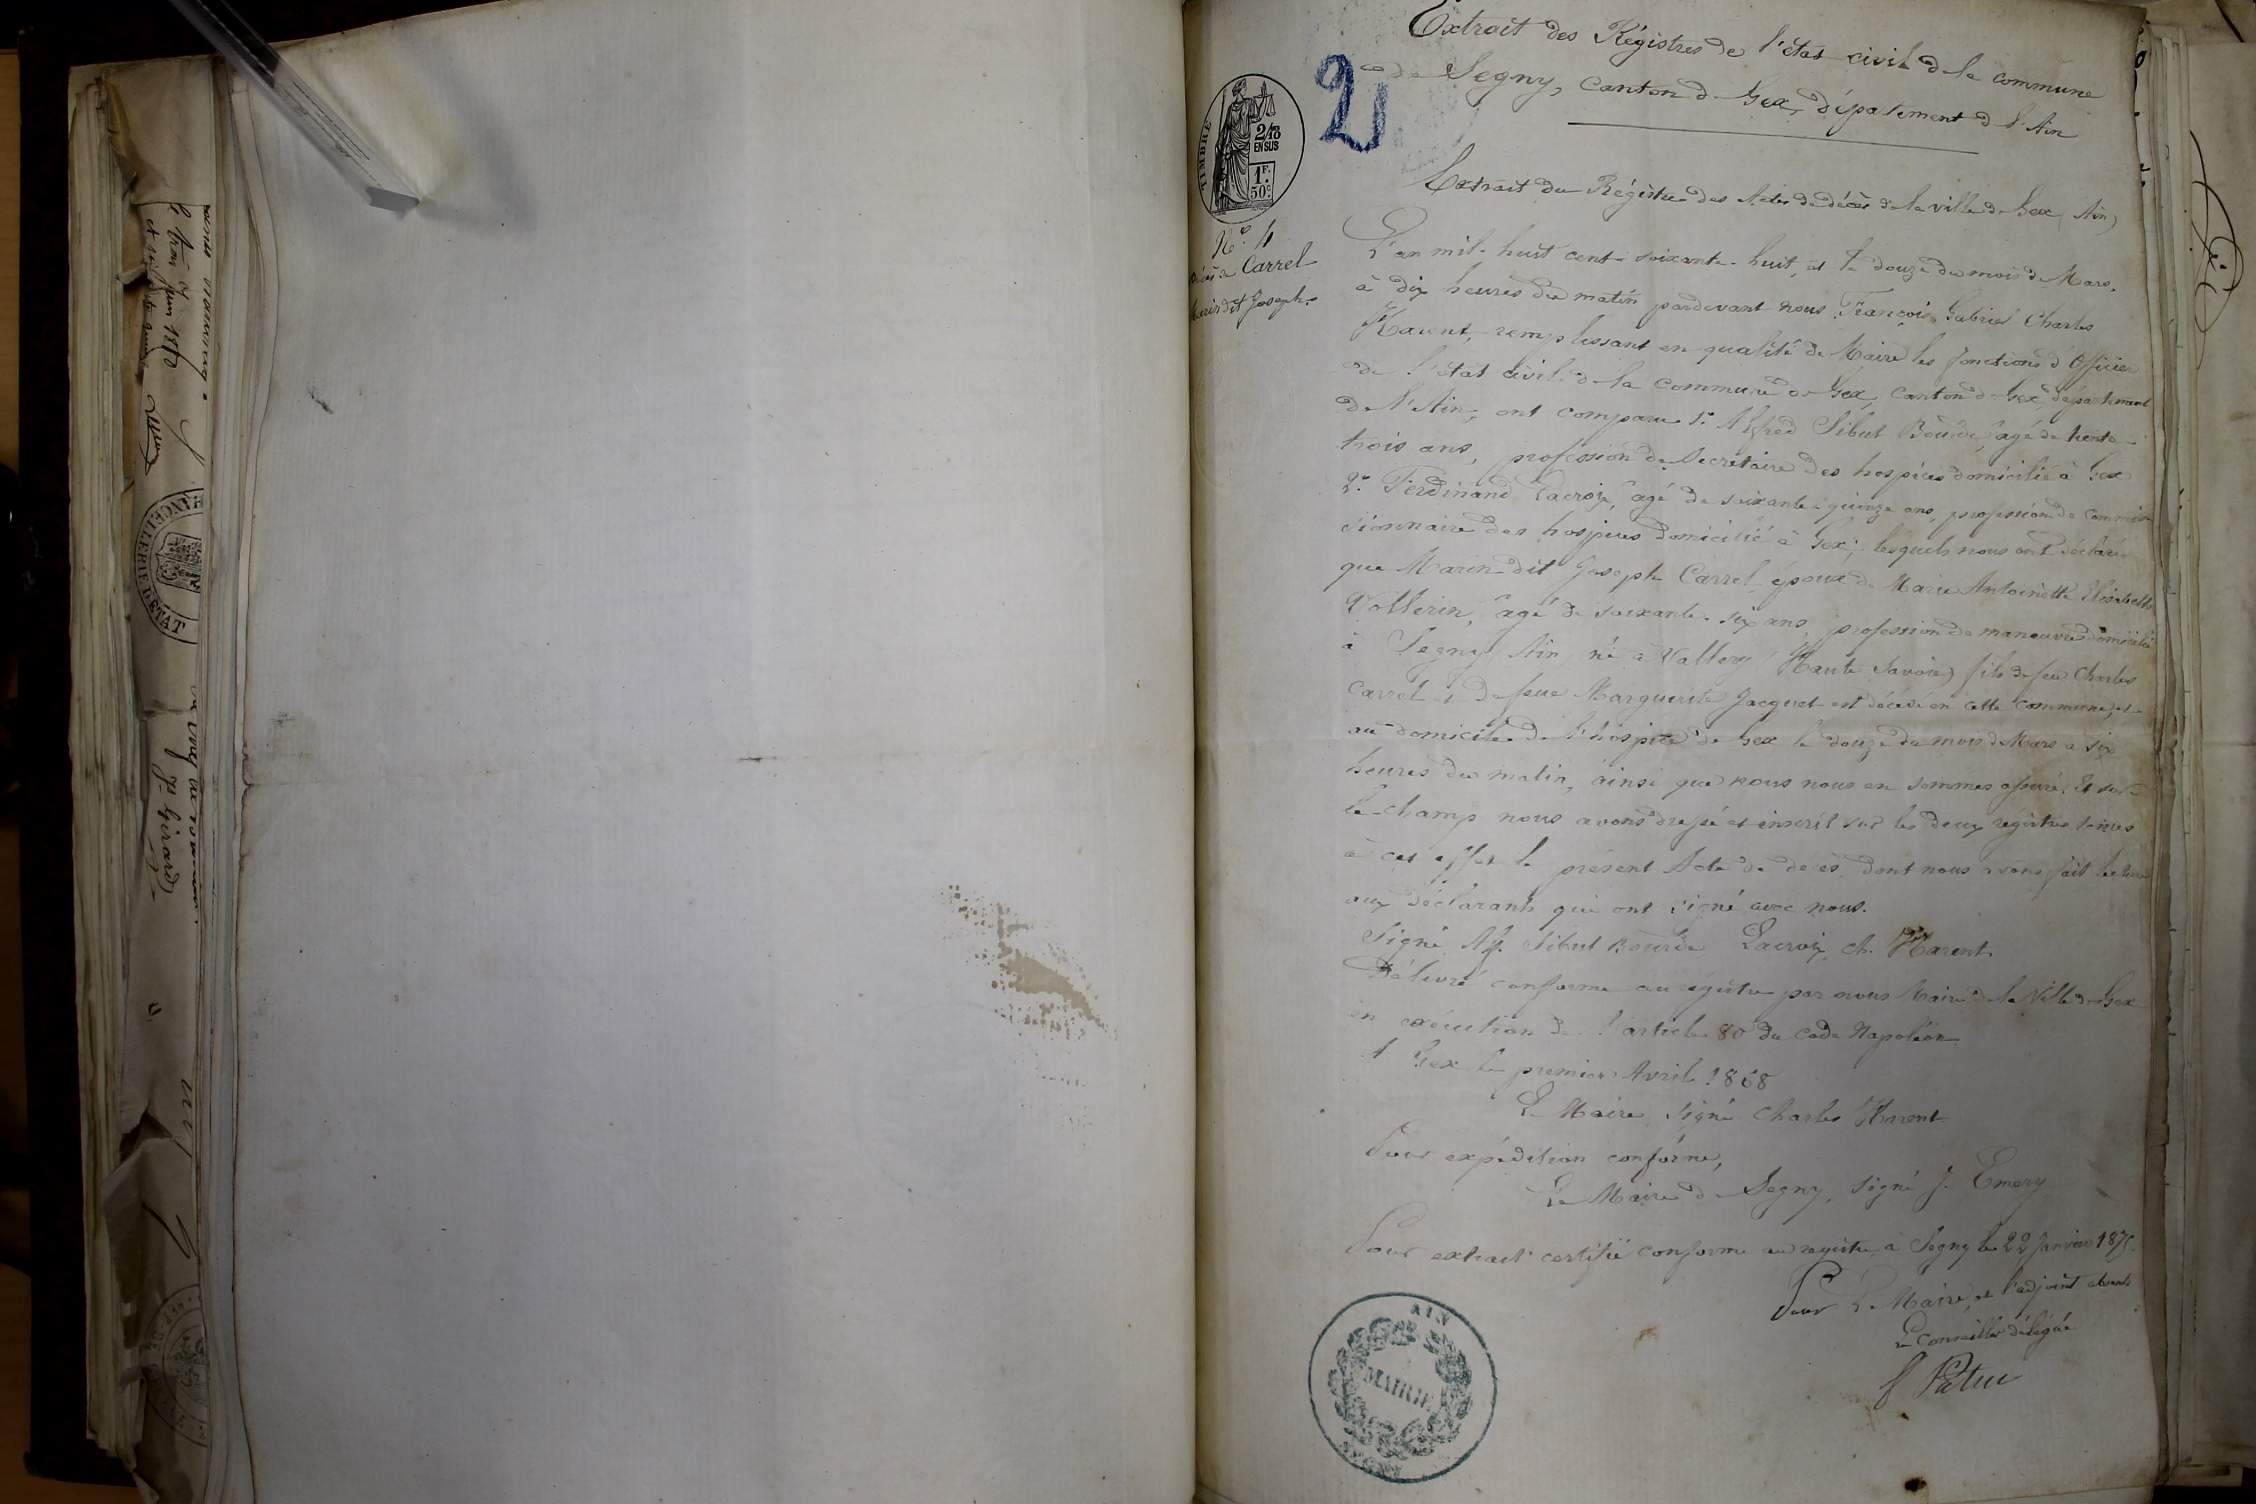 Extrait des Régistres de l'état civil de la commune
de Segny, canton de Gex, département de l'Ain
TIMBRE
2/10
EN SUS
1F.
50c
2
Extrait du Régistre des Actes de décès de la ville de Gex (Ain)
No. 4
décès de Carrel
Marin dit Joseph.
L'an mil huit cent soixante-huit, et le douze du mois de Mars,
à dix heures du matin pardevant nous François Gabriel Charles
Harent, remplissant en qualité de Maire les fonctions d'Officier
de l'état civil de la commune de Gex, canton de Gex, département
de l'Ain, ont comparu 1o Alfred Sibut Bourde, agé de trente-
trois ans, profession de Secrétaire des hospices domicilié à Gex
2o Ferdinand Lacroix, agé de soixante-quinze ans, profession de commis-
sionnaire des hospices domicilié à Gex; lesquels nous ont déclaré
que Marin dit Joseph Carrel, époux de Marie Antoinette Elisabeth
Vollerin, agé de soixante-six ans, profession de manoeuvre domicilié
à Segny (Ain) né à Vallery (Haute Savoie) fils de feu Charles
Carrel et de feue Marguerite Jacquet est décédé en cette commune, et
au domicile de l'hospice de Gex le douze du mois de Mars à six
heures du matin, ainsi que nous nous en sommes assuré. Et sur
le champ nous avons dressé et inscrit sur les deux régistres tenus
à cet effet le présent Acte de décès, dont nous avons fait lecture
aux déclarants qui ont signé avec nous.
Signé Alf. Sibut Bourde Lacroix, Ch. Harent.
Délivré conforme au régistre par nous Maire de la Ville de Gex
en exécution de l'article 80 du code Napoléon
A Gex le premier Avril 1868
Le Maire, signé Charles Harent
Pour expédition conforme,
Le Maire de Segny, signé J. Emery
Pour extrait certifié conforme au registre, à Segny le 22 Janvier 1875.
Pour Le Maire, et l'adjoint absents
Le Conseiller délégué
AIN
MAIRIE
SEGNY
CHANCELLERIE D'ETAT